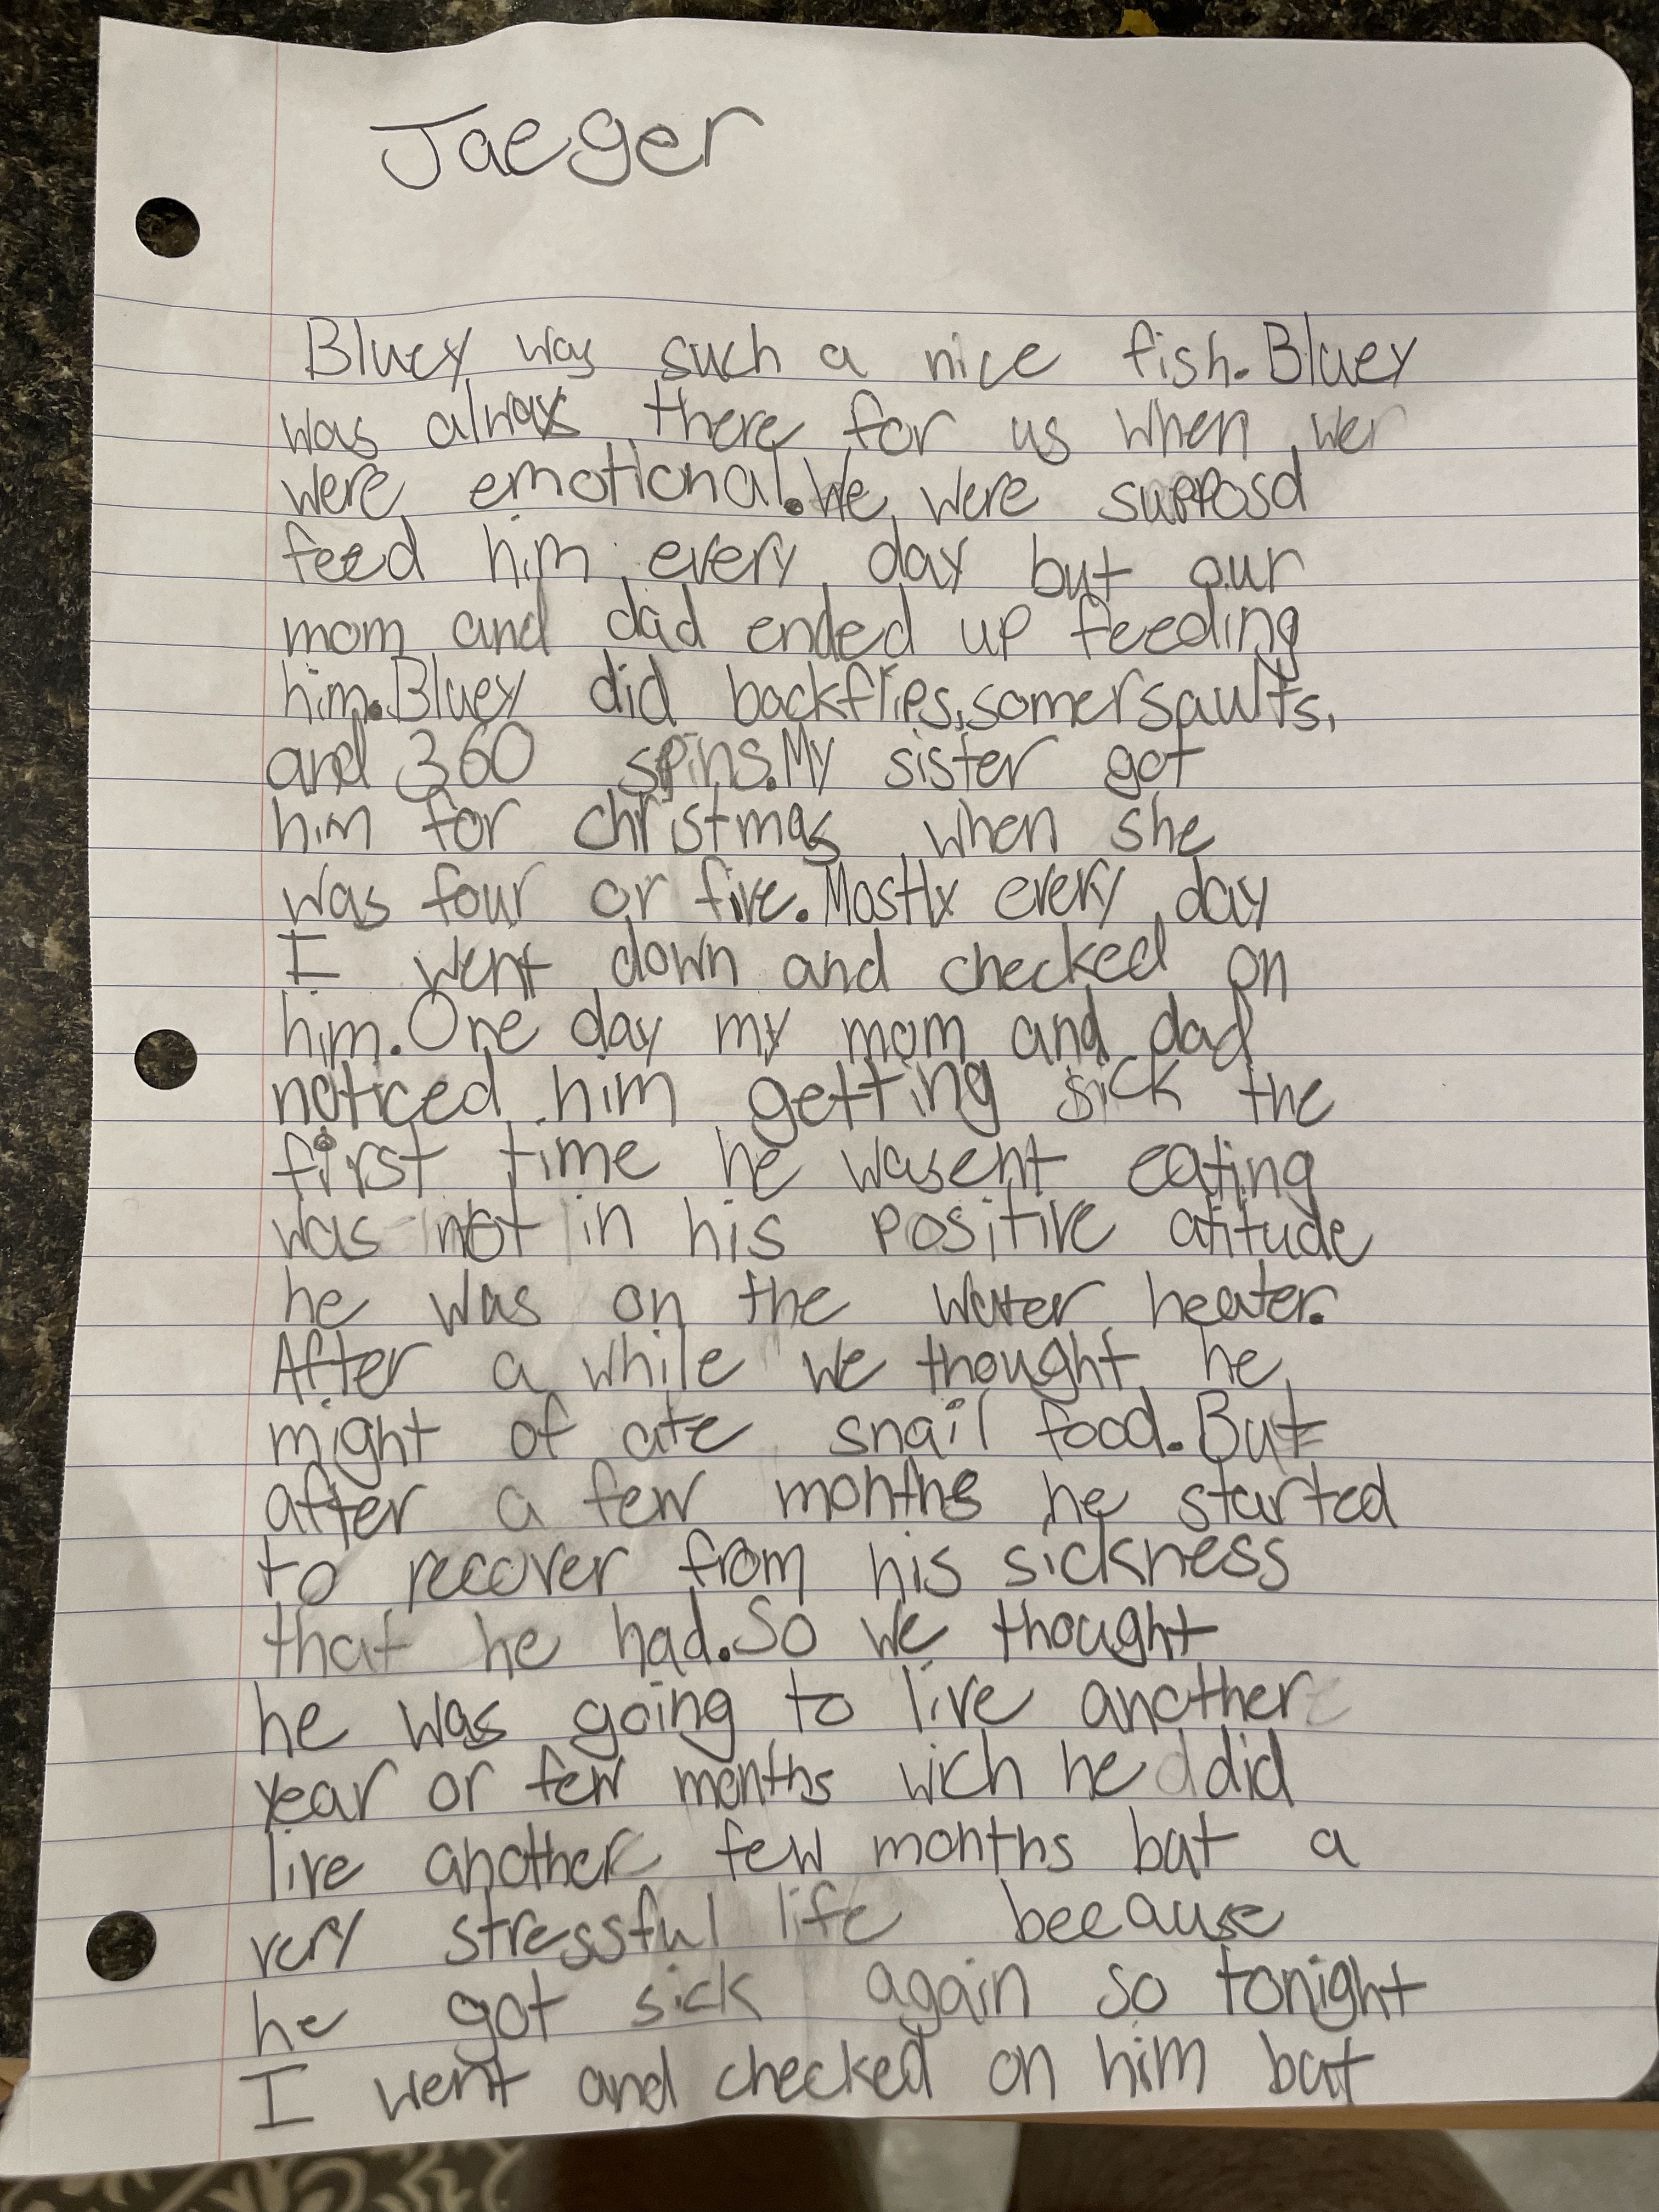 Jaeger
Bluey was such a nice fish. Bluey
was alwax there for us when wer
were emotional. We were supposd
feed him every day but our
mom and dad ended up feeding
him. Bluey did backflips, somersaults,
and 360 spins. My sister got
him for christmas when she
was four or five. Mostly every day
I went down and checked on
him. One day my mom and dad
noticed him getting sick the
first time he wasent eating
was not in his positive atitude
he was on the water heater.
After a while we thought he
might of ate snail food. But
after a few months he started
to recover from his sickness
that he had. So we thought
he was going to live another
year or few months wich he did
live another few months but a
very stressful life beecause
he got sick again so tonight
I went and checked on him but